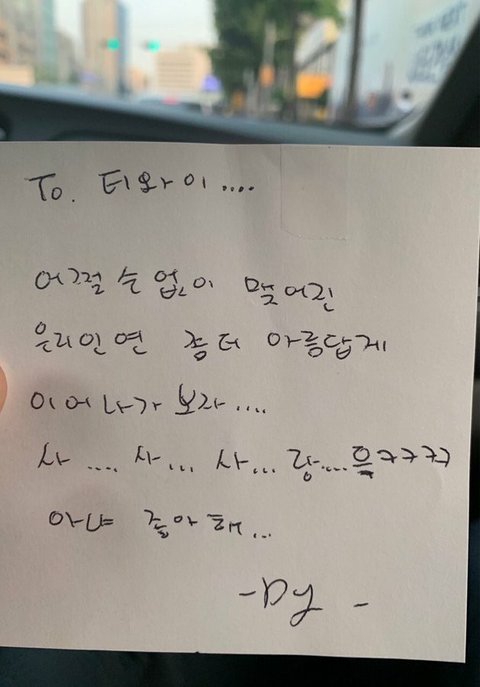 To. 티와이....
어쩔 수 없이 맺어진
우리인연 좀더 아름답게
이어나가 보자....
사.... 사... 사... 랑....읔ㅋㅋㅋㅋ
아냐 좋아해...
-Dy-